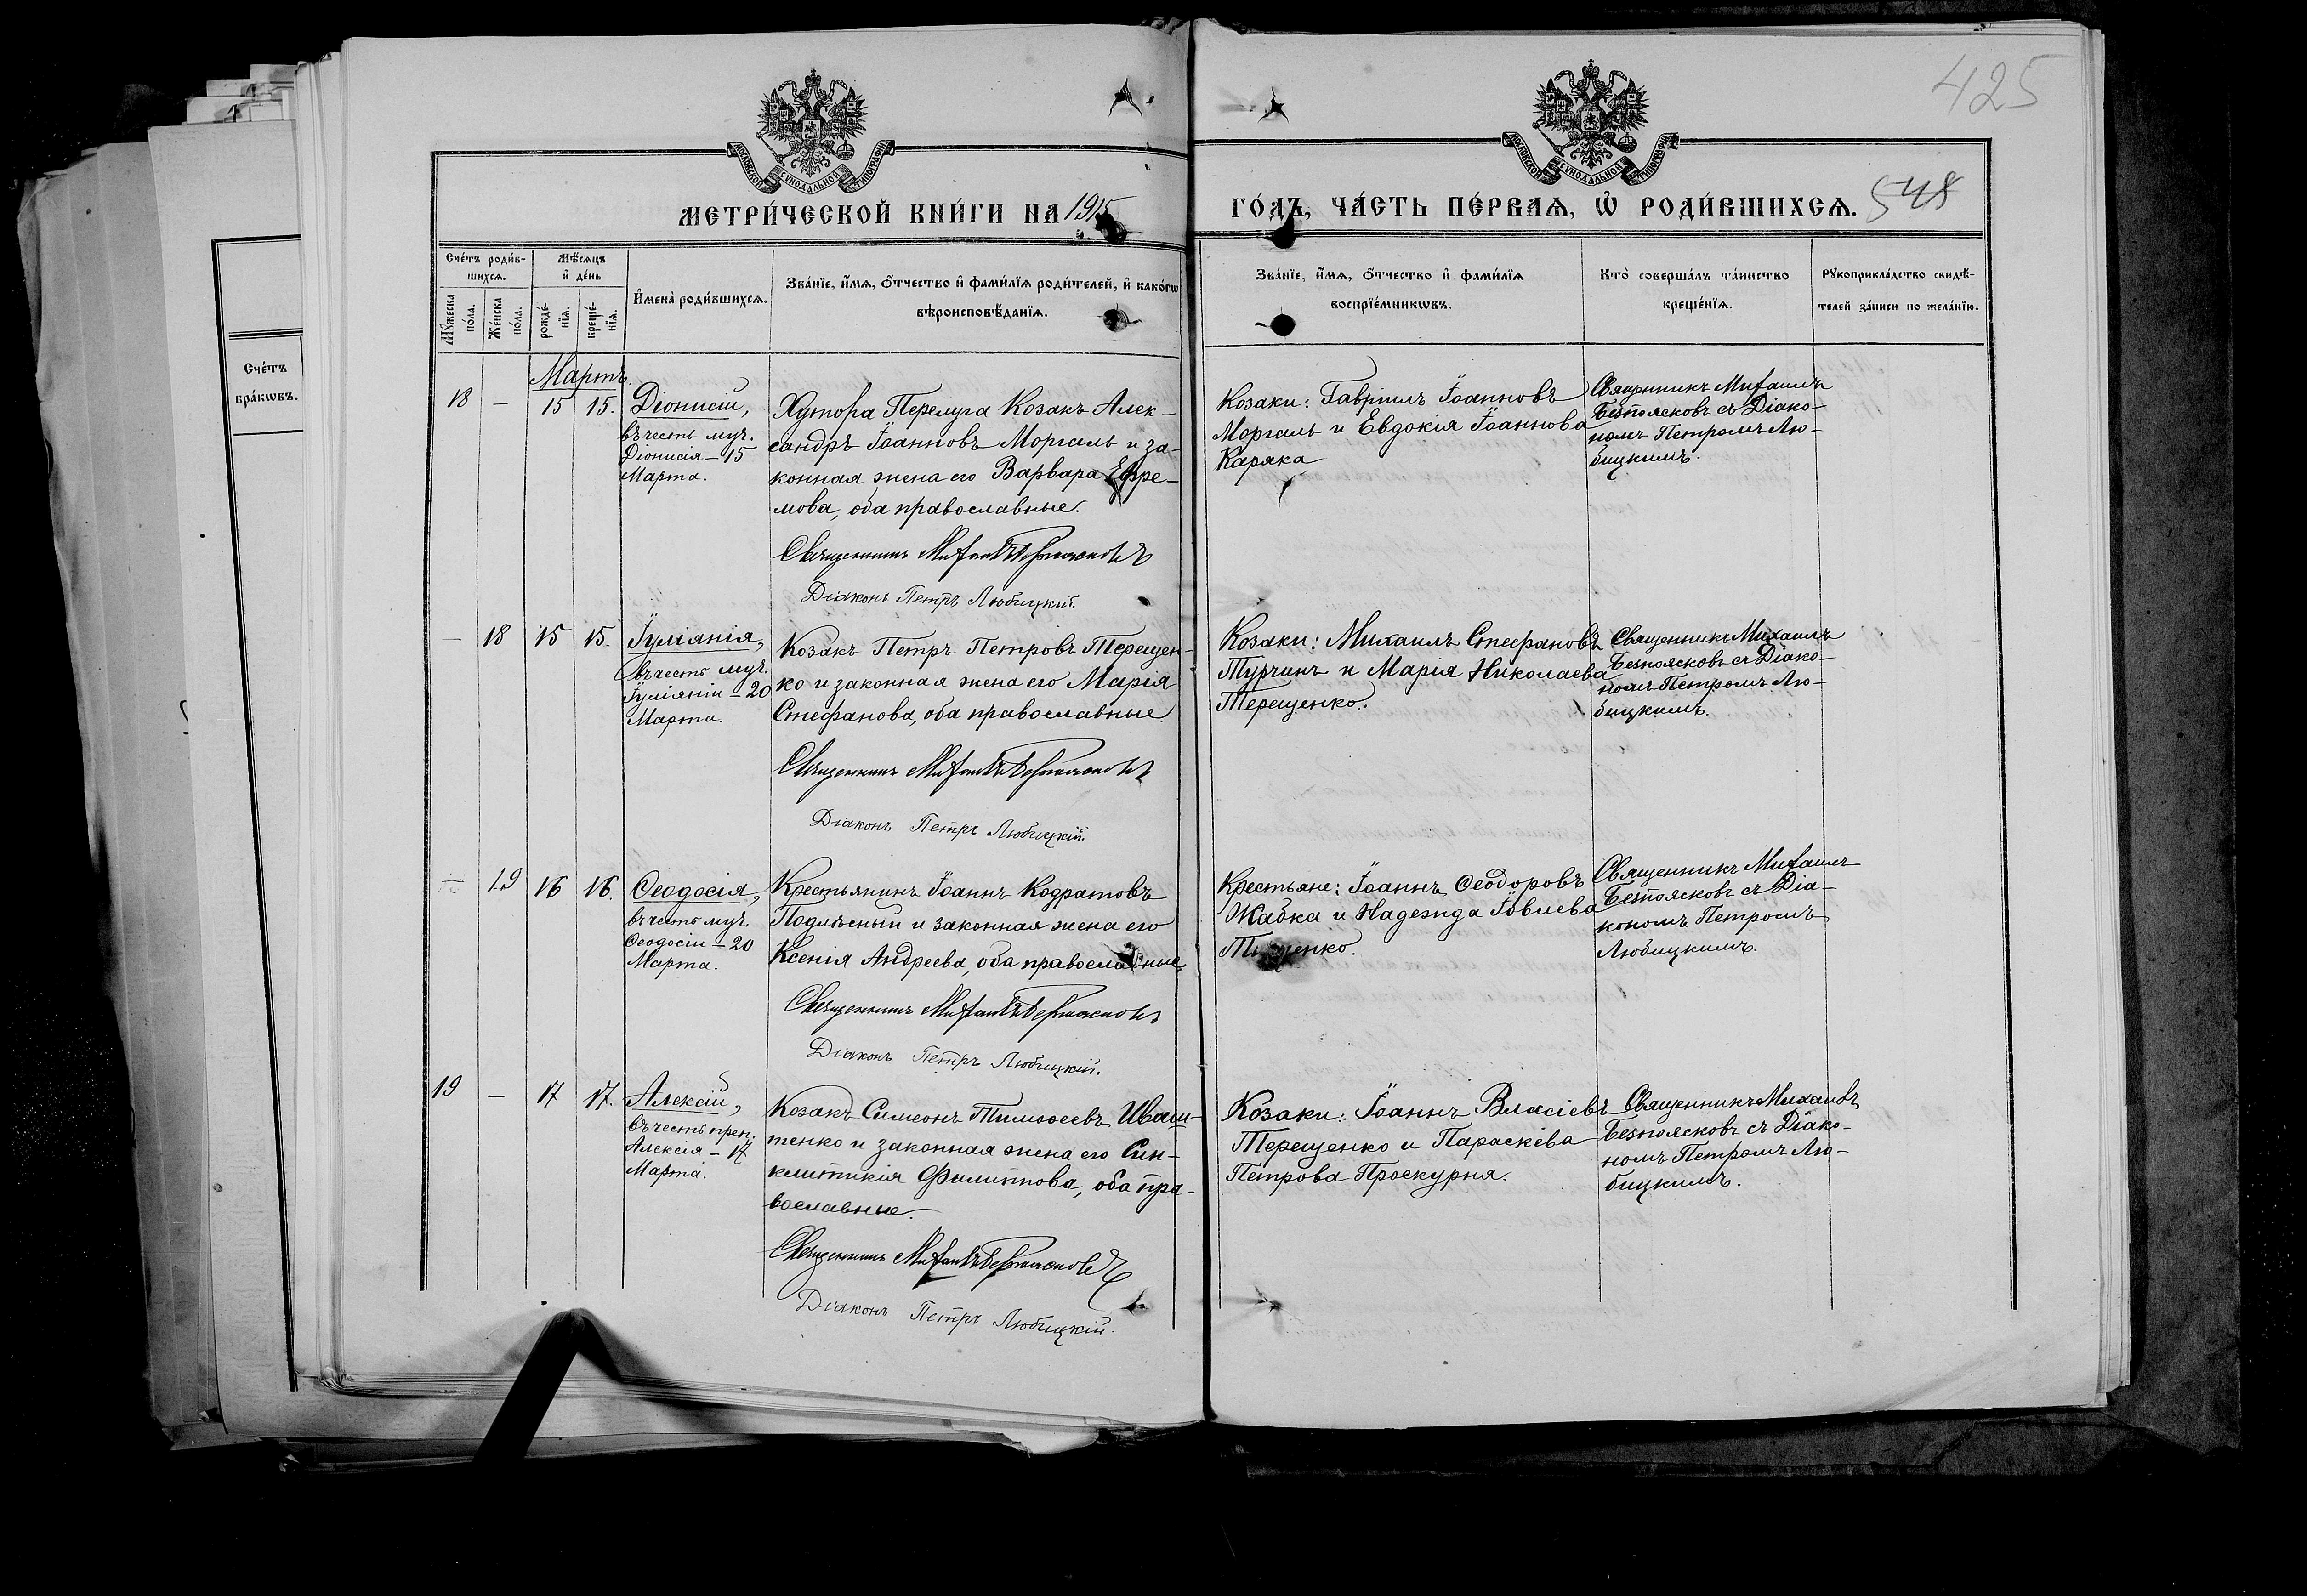 425
МОСКОВСКОЙ СѴНОДАЛЬНОЙ ТИПОГРАФІИ
МОСКОВСКОЙ СѴНОДАЛЬНОЙ ТИПОГРАФІИ
МЕТРИ́ЧЕСКОЙ КНИ́ГИ НА 1915
ГО́ДЪ, ЧА́СТЬ ПЕ́РВАѦ, Ѡ РОДИ́ВШИХСѦ. 548
Сче́тъ роди́в-
шихсѧ.
Мѣ́сѧцъ
и де́нь
Мꙋ́жеска
по́ла.
Же́нска
по́ла.
рожде́-
нїѧ.
креще́-
нїѧ.
Имена̀ роди́вшихсѧ.
Зва́нїе, и́мѧ, о́тчество и фами́лїѧ роди́телей, и како́гѡ
вѣроисповѣ́данїѧ.
Зва́нїе, и́мѧ, о́тчество и фами́лїѧ
воспрїе́мникѡвъ.
Кто̀ соверша́лъ та́инство
креще́нїѧ.
Рꙋкоприкла́дство свидѣ́-
телей за́писи по жела́нїю.
Сче́тъ
бра́кѡвъ.
Мартъ.
18 — 15 15.
Діонисій,
въ честь муч.
Діонисія – 15
Марта.
Хутора Перелуга Козакъ Алек-
сандръ Іоанновъ Моргаль и за-
конная жена его Варвара Ефре-
мова, оба православные.
Священникъ Михаилъ Безпоясковъ
Діаконъ Петръ Любицкій.
Козаки: Гавріилъ Іоанновъ
Моргаль и Евдокія Іоаннова
Каряка
Священникъ Михаилъ
Безпоясковъ съ Діако-
номъ Петромъ Лю-
бицкимъ.
— 18 15 15.
Іуліанія,
въ честь муч.
Іуліаніи – 20
Марта.
Козакъ Петръ Петровъ Терещен-
ко и законная жена его Марія
Стефанова, оба православные
Священникъ Михаилъ Безпоясковъ
Діаконъ Петръ Любицкій.
Козаки: Михаилъ Стефановъ
Турчинъ и Марія Николаева
Терещенко.
Священникъ Михаилъ
Безпоясковъ съ Діако-
номъ Петромъ Лю-
бицкимъ.
— 19 16 16.
Ѳеодосія,
въ честь муч.
Ѳеодосіи – 20
Марта.
Крестьянинъ Іоаннъ Кодратовъ
Подлѣсный и законная жена его
Ксенія Андреева, оба православные.
Священникъ Михаилъ Безпоясковъ
Діаконъ Петръ Любицкій.
Крестьяне: Іоаннъ Ѳеодоровъ
Жабка и Надежда Іовлева
Священникъ Михаилъ
Безпоясковъ съ Діа-
кономъ Петромъ
Любицкимъ.
19 — 17 17.
Алексій,
въ честь преп.
Алексія – 17
Марта.
Козакъ Симеонъ Тимоѳеевъ Иваш-
тенко и законная жена его Син-
клитикія Филиппова, оба пра-
вославные.
Священникъ Михаилъ Безпоясковъ
Діаконъ Петръ Любицкій.
Козаки: Іоаннъ Власіевъ
Терещенко и Параскева
Петрова Проскурня.
Священникъ Михаилъ
Безпоясковъ съ Діако-
номъ Петромъ Лю-
бицкимъ.